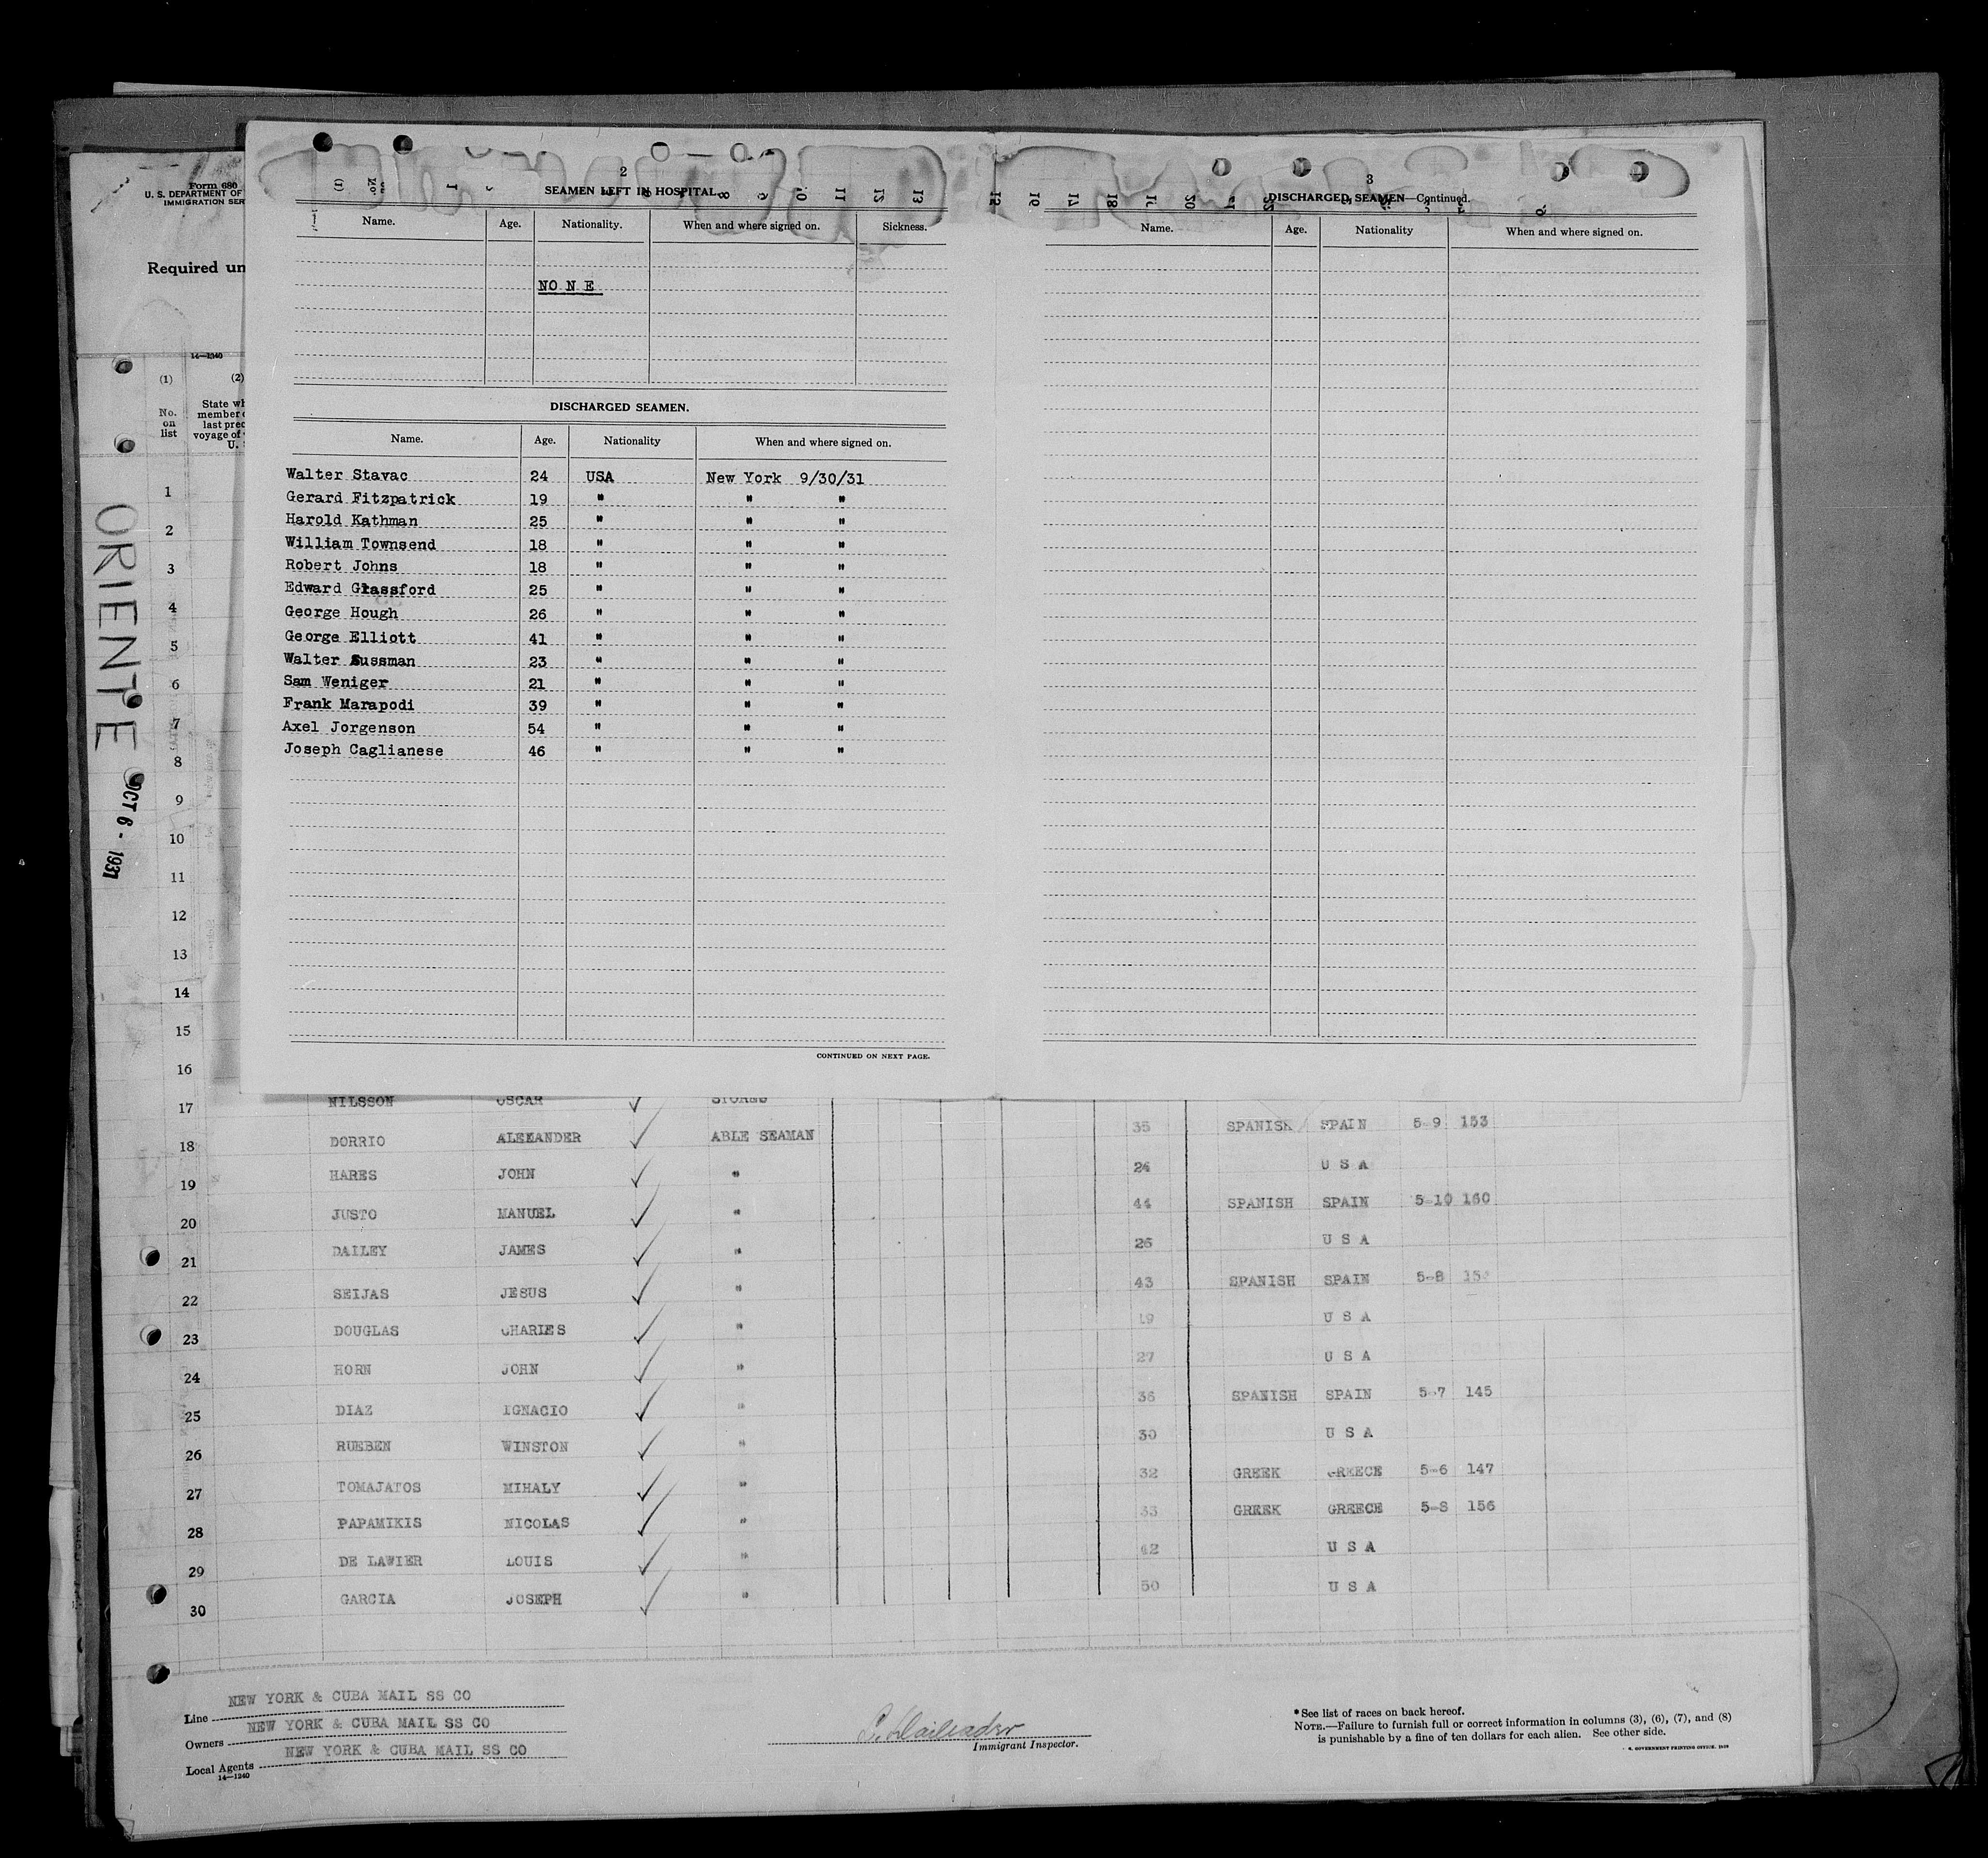 Form 680
U. S. DEPARTMENT OF
IMMIGRATION SER
Required un
14—1240
(1)
(2)
No.
on
list
State wh
member o
last prec
voyage of
U. S
ORIENTE
OCT 6 - 1931
2
SEAMEN LEFT IN HOSPITAL.
Name. Age. Nationality. When and where signed on. Sickness.
NONE
DISCHARGED SEAMEN.
Name. Age. Nationality When and where signed on.
Walter Stavac 24 USA New York 9/30/31
Gerard Fitzpatrick 19 " " "
Harold Kathman 25 " " "
William Townsend 18 " " "
Robert Johns 18 " " "
Edward Glassford 25 " " "
George Hough 26 " " "
George Elliott 41 " " "
Walter Sussman 23 " " "
Sam Weniger 21 " " "
Frank Marapodi 39 " " "
Axel Jorgenson 54 " " "
Joseph Caglianese 46 " " "
CONTINUED ON NEXT PAGE.
3
DISCHARGED SEAMEN—Continued.
Name. Age. Nationality When and where signed on.
1
2
3
4
5
6
7
8
9
10
11
12
13
14
15
16
17 NILSSON OSCAR STORES
18 DORRIO ALEXANDER ABLE SEAMAN 35 SPANISH SPAIN 5-9 153
19 HARES JOHN " 24 U S A
20 JUSTO MANUEL " 44 SPANISH SPAIN 5-10 160
21 DAILEY JAMES " 26 U S A
22 SEIJAS JESUS " 43 SPANISH SPAIN 5-8
23 DOUGLAS CHARLES " 19 U S A
24 HORN JOHN " 27 U S A
25 DIAZ IGNACIO " 36 SPANISH SPAIN 5-7 145
26 RUEBEN WINSTON " 30 U S A
27 TOMAJATOS MIHALY " 32 GREEK GREECE 5-6 147
28 PAPAMIKIS NICOLAS " 33 GREEK GREECE 5-8 156
29 DE LAWIER LOUIS " 42 U S A
30 GARCIA JOSEPH " 50 U S A
Line NEW YORK & CUBA MAIL SS CO
Owners NEW YORK & CUBA MAIL SS CO
Local Agents NEW YORK & CUBA MAIL SS CO
14—1240
Immigrant Inspector.
*See list of races on back hereof.
NOTE.—Failure to furnish full or correct information in columns (3), (6), (7), and (8)
is punishable by a fine of ten dollars for each alien. See other side.